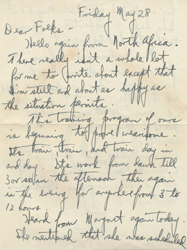 Friday May 28
Dear Folks -
Hello again from North Africa.
There really isn't a whole lot
for me to write about except that
I'm still and about as happy as
the situation permits.
This training program of ours
is beginning to prove wearisome.
It's train, train, and train day in
and day. It's work from dawn till
3 or so in the afternoon then again
in the evening for anywhere from 3 to
12 hours
Heard from Margaret again today
She mentioned that she was